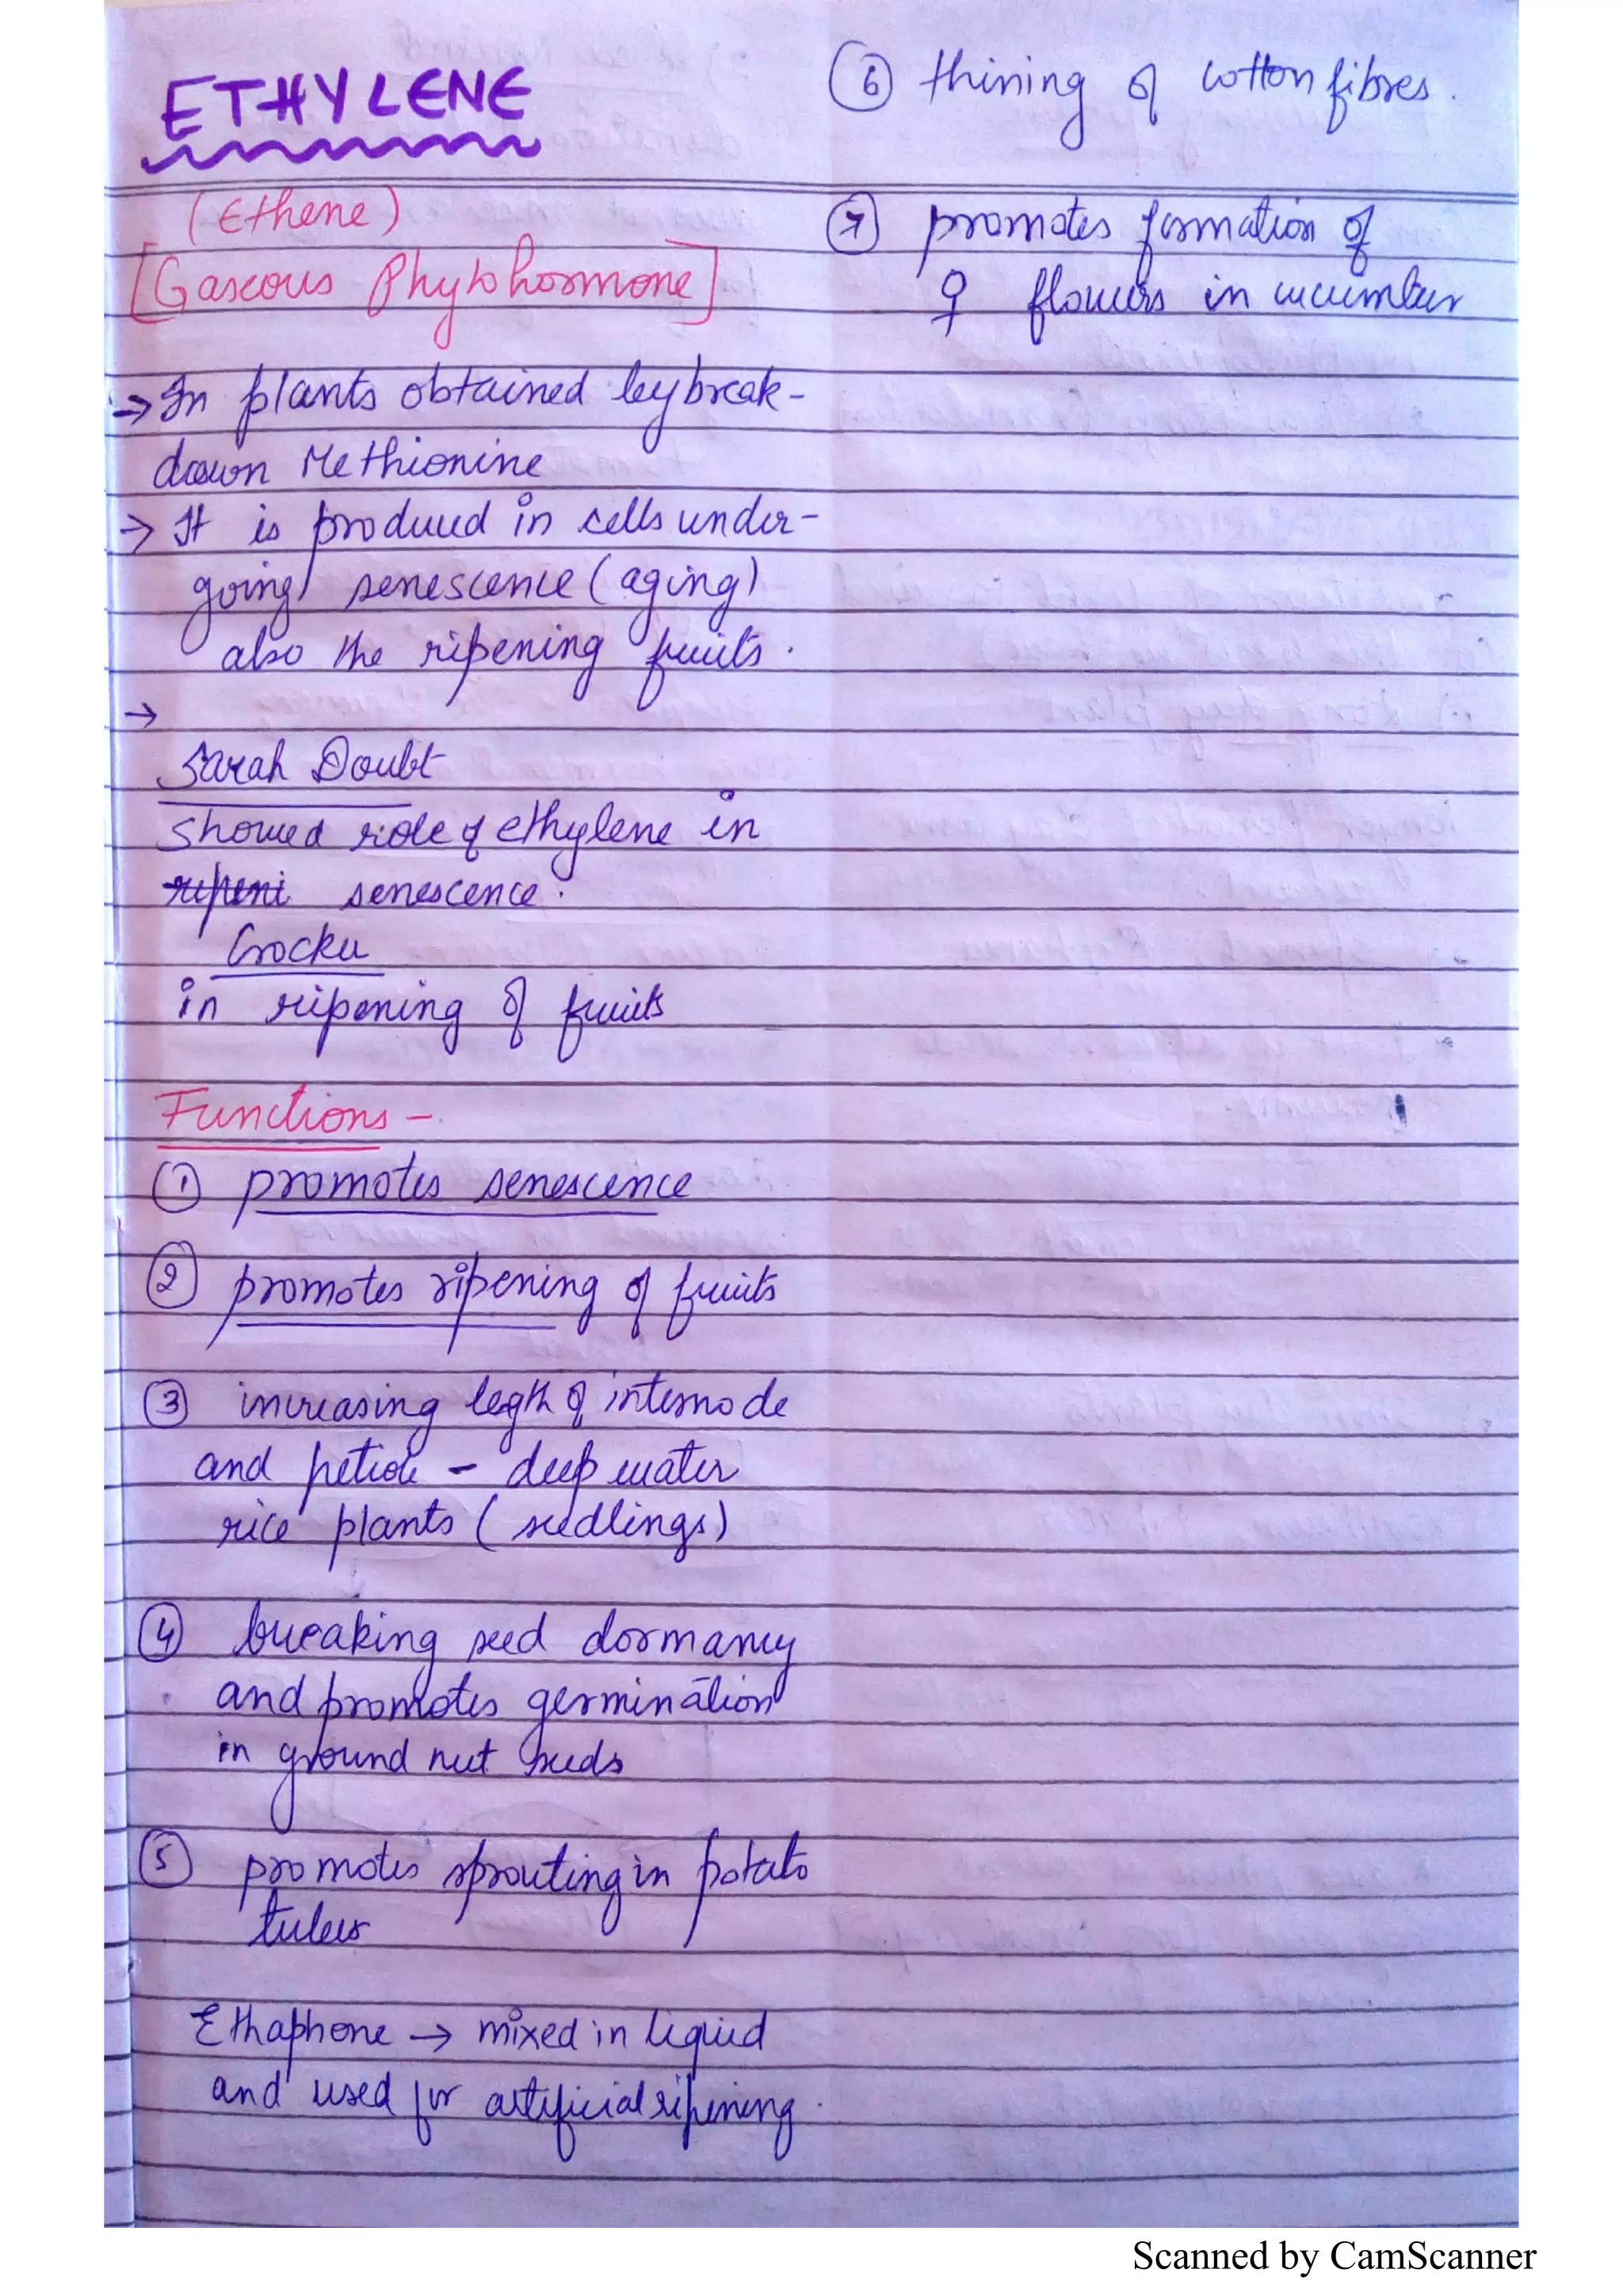 ETHYLENE
(Ethene)
[Gaseous Phytohormone]
→ In plants obtained by break-
down Methionine
→ It is produced in cells under-
going senescence (aging)
also the ripening fruits.
→
Sarah Doubt
Showed role of ethylene in
ripeni senescence.
Crocker
in ripening of fruits
Functions -
① promotes senescence
② promotes ripening of fruits
③ increasing legth of internode
and petiole - deep water
rice plants (seedlings)
④ breaking seed dormancy
and promotes germination
in ground nut seeds
⑤ promotes sprouting in potato
tubers
Ethaphone → mixed in liquid
and used for artificial ripening.
⑥ thining of cotton fibres.
⑦ promotes formation of
♀ flowers in cucumber
Scanned by CamScanner